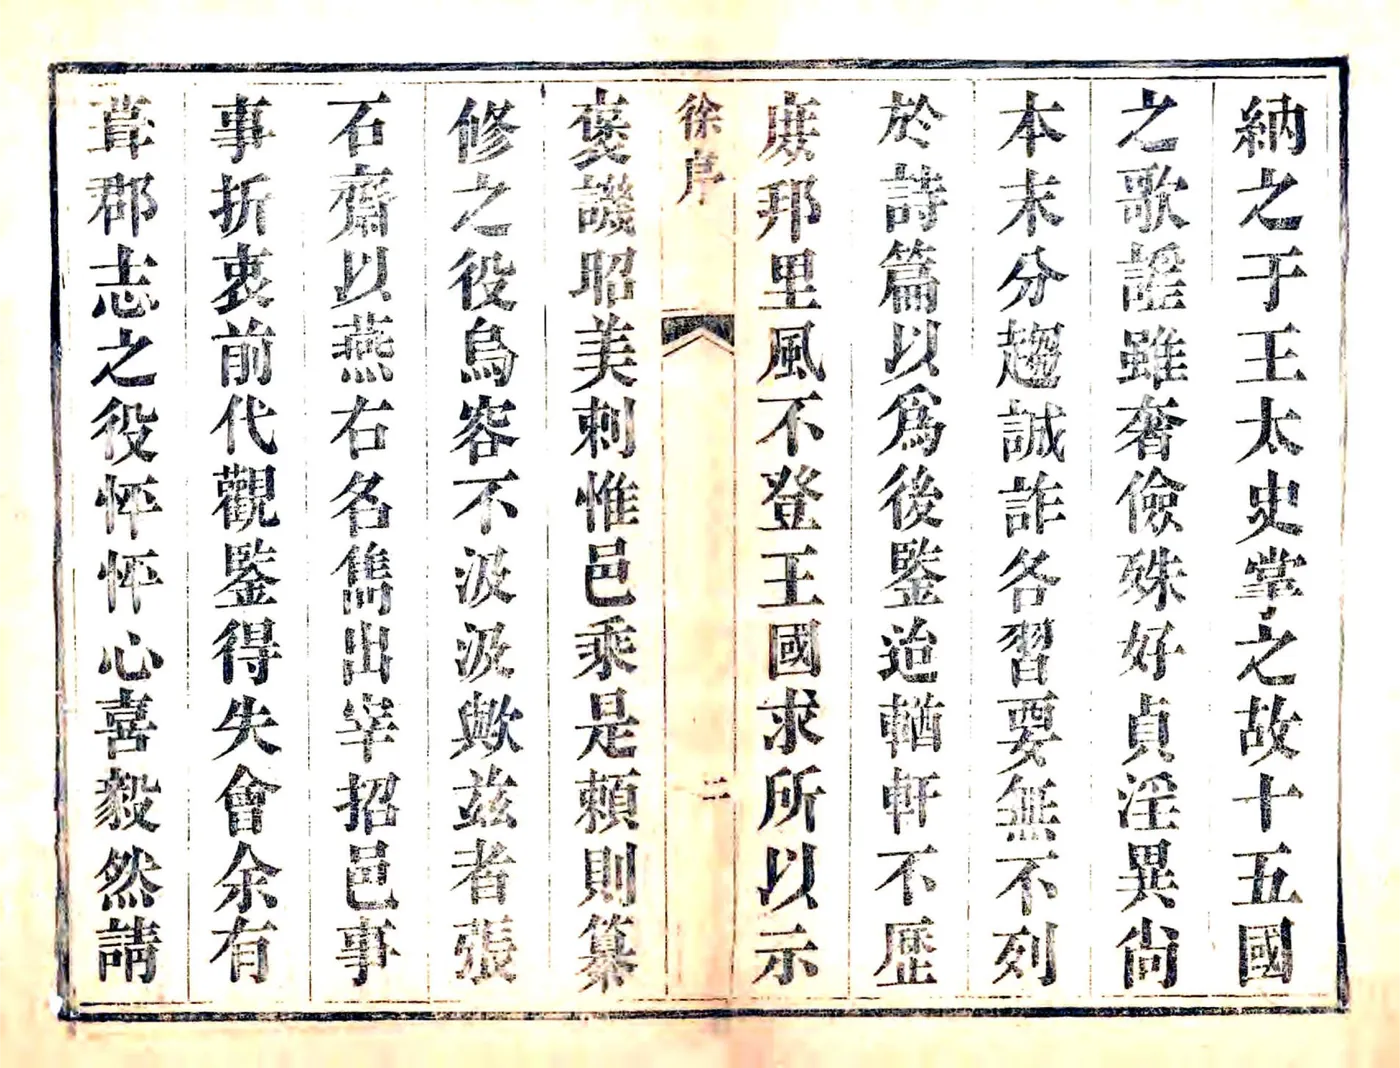 納之于王太史掌之故十五國
之歌謡雖奢儉殊好貞淫異尙
本末分趨誠詐各習要無不列
於詩篇以爲後鑒迨輶軒不歷
庻邦里風不登王國求所以示
徐序
二
襃譏昭美刺惟邑乘是頼則纂
修之役烏容不汲汲歟兹者張
石齋以燕右名雋出宰招邑事
事折衷前代觀鑒得失會余有
葺郡志之役怦怦心喜毅然請